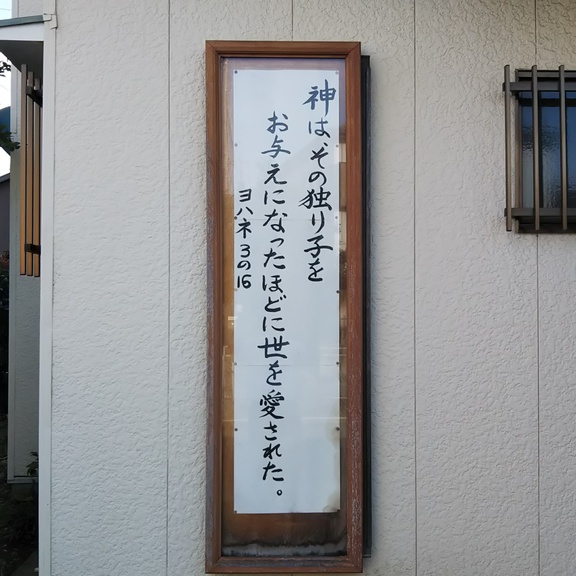 神は、その独り子を
お与えになったほどに世を愛された。
ヨハネ3の16